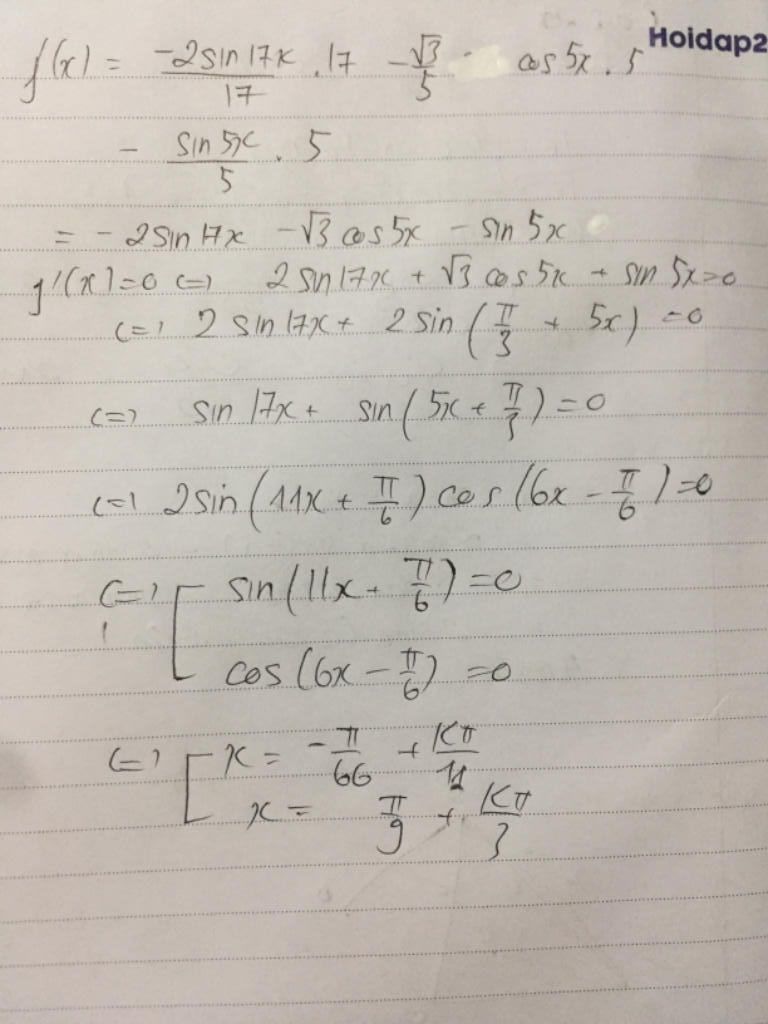 Hoidap2
f'(x) = -2sin 17x/17 . 17 - √3/5 cos 5x . 5
- sin 5x/5 . 5
= - 2sin 17x - √3 cos 5x - sin 5x
f'(x)=0 (=) 2 sin 17x + √3 cos 5x + sin 5x=0
(=) 2 sin 17x + 2 sin (π/3 + 5x) =0
(=) sin 17x + sin (5x + π/3) = 0
(=) 2sin (11x + π/6) cos (6x - π/6) =0
(=) [ sin (11x + π/6) =0
cos (6x - π/6) =0
(=) [ x = -π/66 + kπ/11
x = π/9 + kπ/3